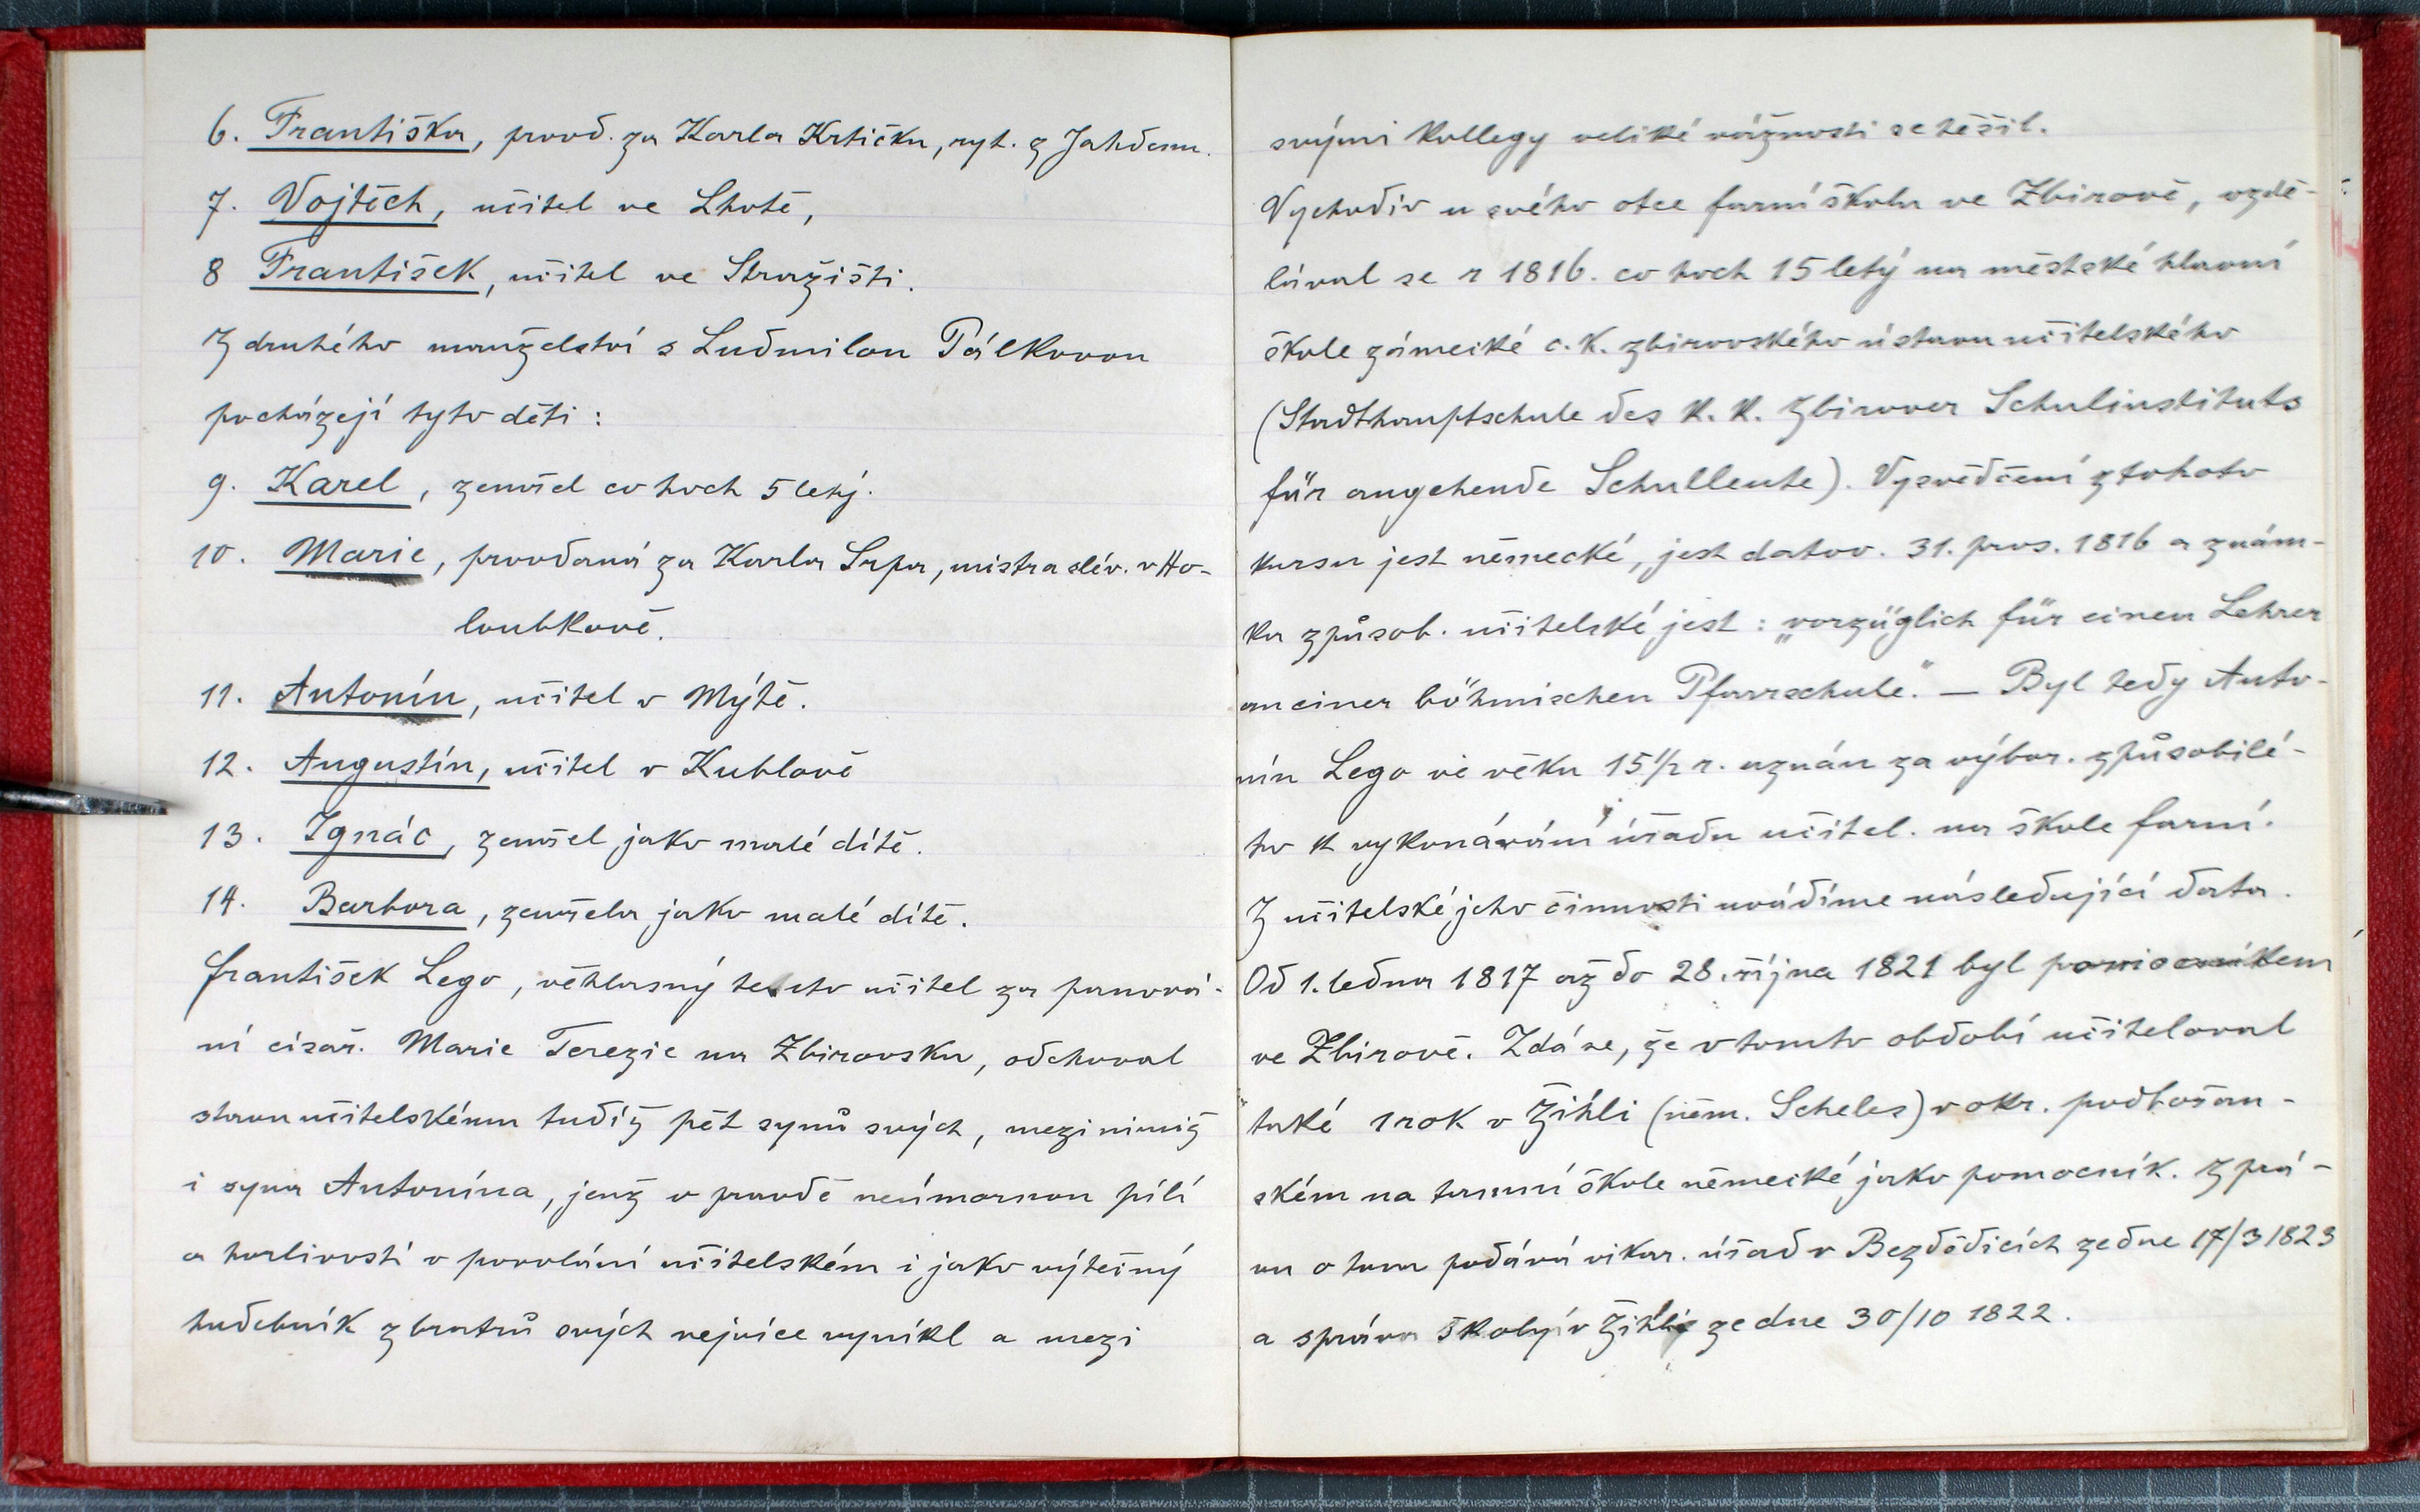 6. Františka, provd. za Karla Krtičku, ryt. z Jahdenu.
7. Vojtěch, učitel ve Lhotě,
8 František, učitel ve Stražišti.
Z druhého manželství s Ludmilou Pálkovou
pocházejí tyto děti:
9. Karel, zemřel co hoch 5 letý.
10. Marie, provdaná za Karla Srpa, mistra slév. v Ho-
loubkově.
11. Antonín, učitel v Mýtě.
12. Augustín, učitel v Kublově
13. Ignác, zemřel jako malé dítě.
14. Barbora, zemřela jako malé dítě.
František Lego, věhlasný tento učitel za panová-
ní císař. Marie Terezie na Zbirovsku, odchoval
stavu učitelskému tudíž pět synů svých, mezi nimiž
i syna Antonína, jenž v pravdě neúmornou pílí
a horlivostí v povolání učitelském i jako výtečný
hudebník z bratrů svých nejvíce vynikl a mezi
svými kollegy veliké vážnosti se těšil.
Vychodiv u svého otce farní školu ve Zbirově, vzdě-
lával se r 1816. co hoch 15 letý na městské hlavní
škole zámecké c. k. zbirovského ústavu učitelského
(Stadthauptschule des k. k. Zbirover Schulinstituts
für angehende Schulleute). Vysvědčení z tohoto
kursu jest německé, jest datov. 31. pros. 1816 a znám-
ka způsob. učitelské jest: „vorzüglich für einen Lehrer
an einer böhmischen Pfarrschule." — Byl tedy Anto-
nín Lego ve věku 15 1/2 r. uznán za výbor. způsobilé-
ho k vykonávání úřadu učitel. na škole farní.
Z učitelské jeho činnosti uvádíme následující data.
Od 1. ledna 1817 až do 28. října 1821 byl pomocníkem
ve Zbirově. Zdá se, že v tomto období učiteloval
také 1 rok v Žihli (něm. Scheles) v okr. podbořan-
ském na tamní škole německé jako pomocník. Zprá-
vu o tom podává vikar. úřad v Bezdědicích ze dne 17/3 1823
a správa školy v Žihli ze dne 30/10 1822.